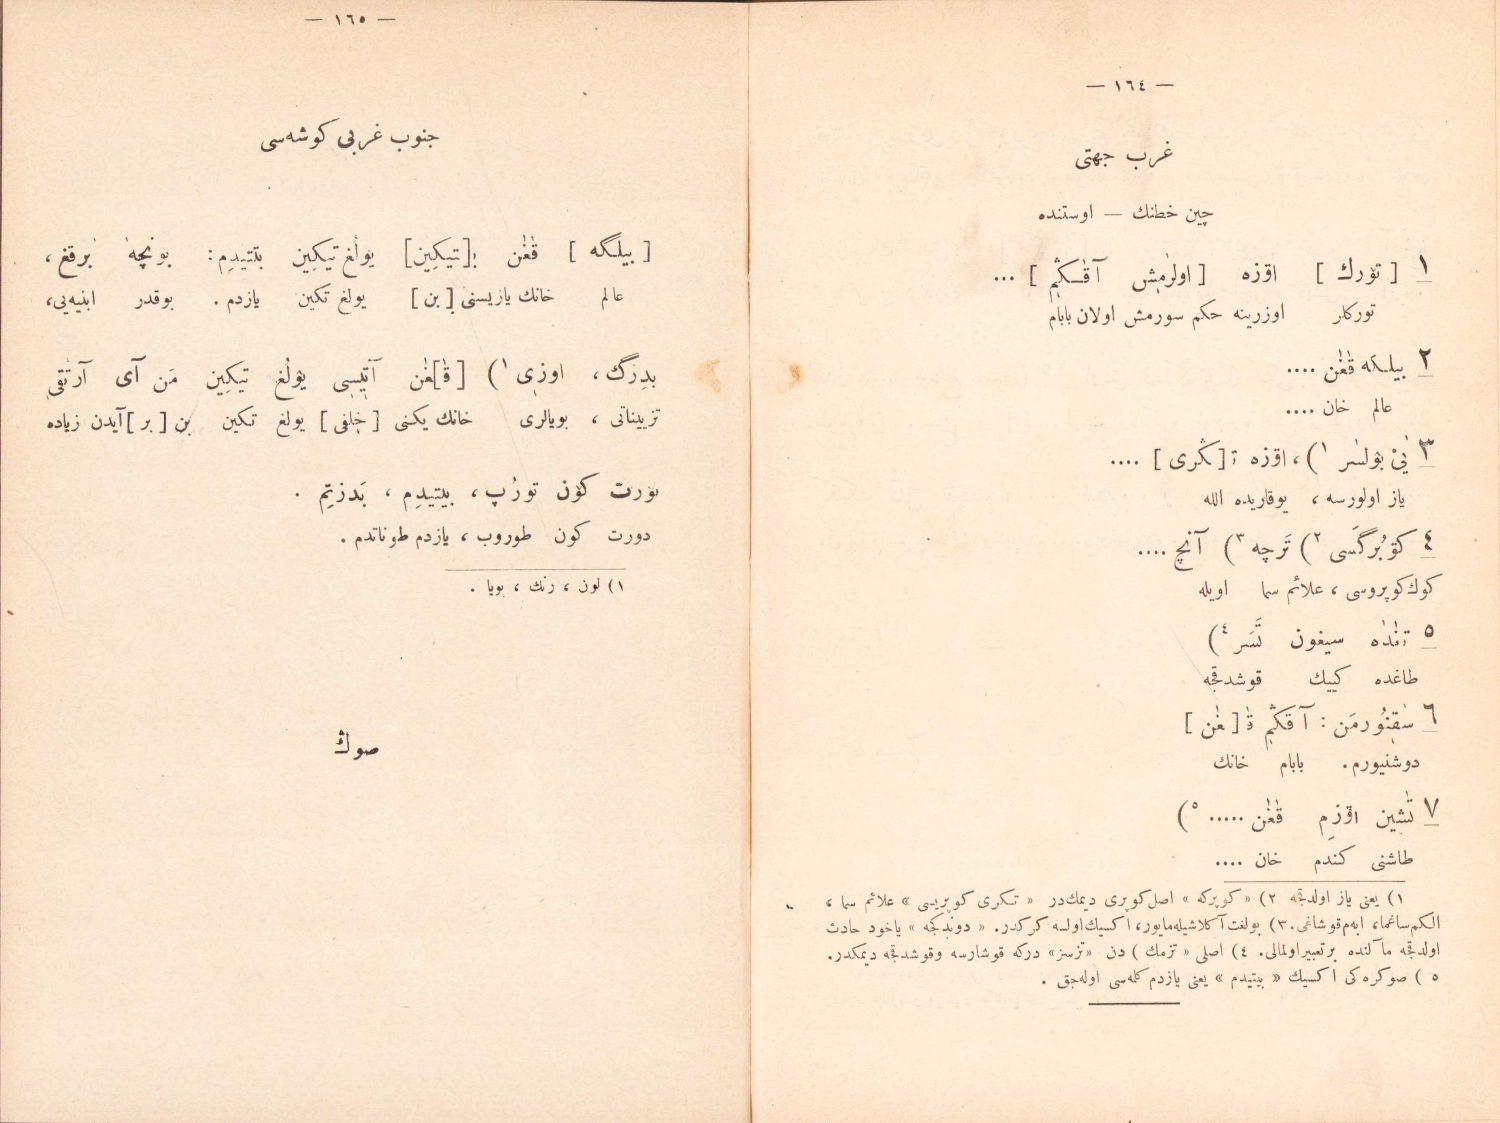 — ١٦٤ —
غرب جهتى
چين خطنك — اوستنده
١ [ تۆرك ] اۆزه [ اولرمش آقـڭم ] ...
توركلر اوزرينه حكم سورمش اولان بابام
٢ بيلـكه قغن ....
عالم خان ....
٣ يئ بۆلسر ١) ، اۆزه ت [ ڭرى ] ....
ياز اولورسه ، يوقاريده الله
٤ كۆبرگسى ٢) ترچه ٣) آنچ ....
كوك كوپروسى ، علائم سما اويله
٥ تغده سيغون تسر ٤)
طاغده كييك قوشدقجه
٦ سقنورمن : آقڭم ق [ غن ]
دوشنيورم . بابام خانك
٧ تشين اۆزم قغن ..... ٥)
طاشنى كندم خان ....
١) يعنى ياز اولدقجه ٢) « كوپركه » اصل كوپرى ديمك‌در « تـكرى كوپريسى » علائم سما ،
الكم ساغما، ابه‌م قوشاغى . ٣) بولغت آكلاشيله‌مايور، اكسيك اولسه كركدر. « دوندكجه » ياخود حادث
اولدقجه مآلنده بر تعبير اولمالى. ٤) اصلى « تزمك ) دن « تزسز » دركه قوشارسه وقوشدقجه ديمكدر.
٥ ) صوكره‌كى اكسيك « بيتيدم » يعنى يازدم كله‌سى اوله‌جق .
— ١٦٥ —
جنوب غربى كوشه‌سى
[ بيلـگه ] قغن ب[تيكين] يولغ تيكين بتتيدم : بونچه برقغ ،
عالم خانك يازيسنى [ بن ] يولغ تكين يازدم . بوقدر ابنيه‌يى،
بدزگ ، اوزى ١) [ ق]غن آتيسى يۆلغ تيكين من آى آرتقى
تزييناتى ، بويالرى خانك يكنى [ خلفى ] يولغ تـكين بن [ بر ] آيدن زياده
تۆرت كۆن تورپ ، بيتيدم ، بدزتم .
دورت كون طوروب ، يازدم طوناتدم .
١) لون ، رنك ، بويا .
صوڭ